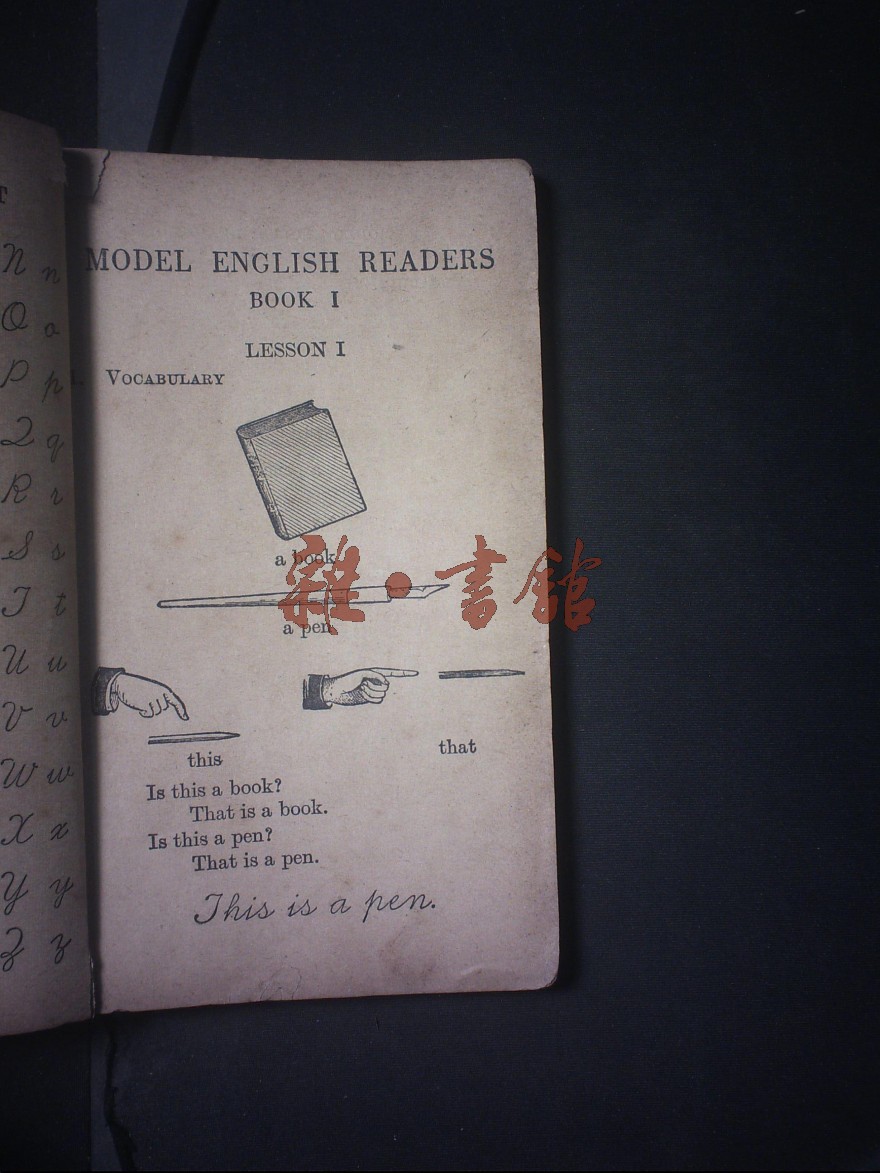 T
N n
O o
P p
Q q
R r
S s
T t
U u
V v
W w
X x
Y y
Z z
MODEL ENGLISH READERS
BOOK I
LESSON I
VOCABULARY
a book
雜·書館
a pen
this
that
Is this a book?
That is a book.
Is this a pen?
That is a pen.
This is a pen.